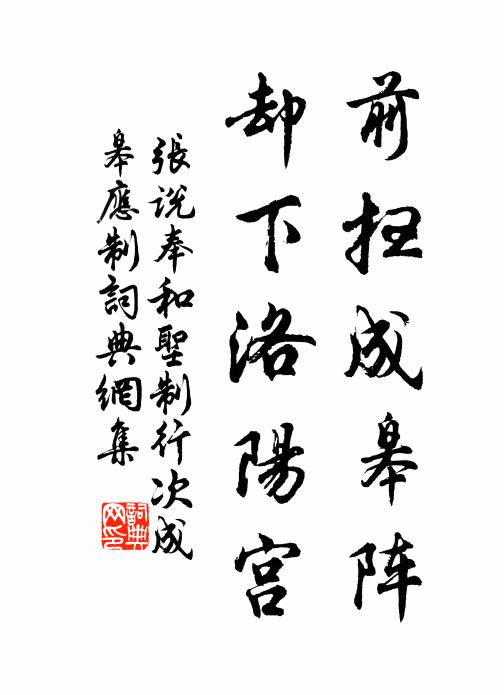 前扫成皋阵
却下洛陽宫
張说奉和聖制行次成
皋應制詞典網集
詞典
网印